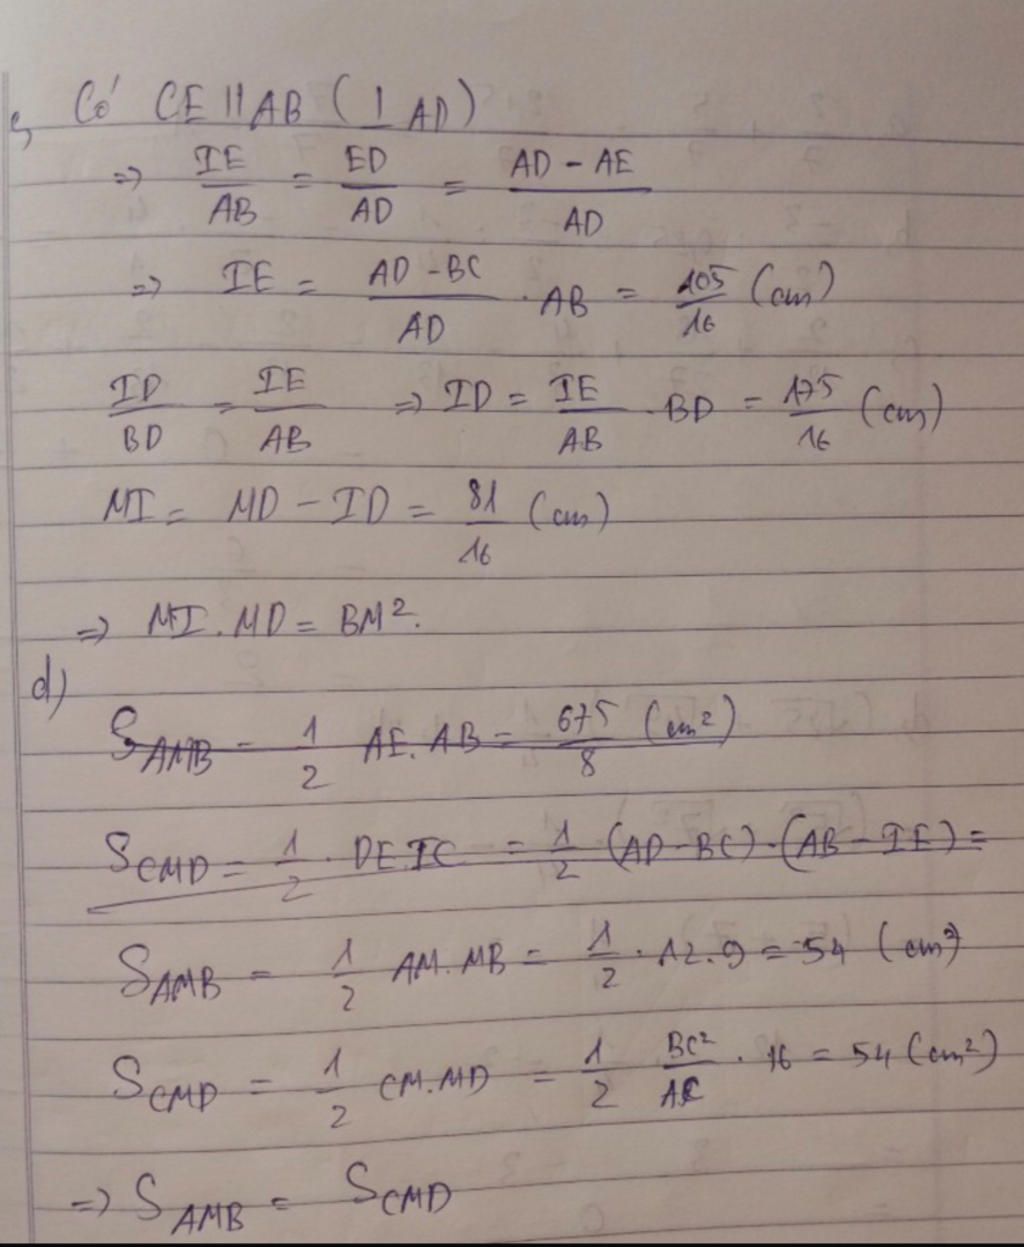 c, Có CE || AB (⊥ AD)
=> IE/AB = ED/AD = (AD - AE)/AD
=> IE = (AD - BC)/AD . AB = 105/16 (cm)
ID/BD = IE/AB => ID = IE/AB . BD = 175/16 (cm)
MI = MD - ID = 81/16 (cm)
=> MI . MD = BM².
d)
S_AMB = 1/2 AE. AB = 675/8 (cm²)
S_CMD = 1/2 . DE.IC = 1/2 (AD - BC) . (AB - IE) =
S_AMB = 1/2 AM. MB = 1/2 . 12. 9 = 54 (cm²)
S_CMD = 1/2 CM. MD = 1/2 BC²/AC . 16 = 54 (cm²)
=> S_AMB = S_CMD